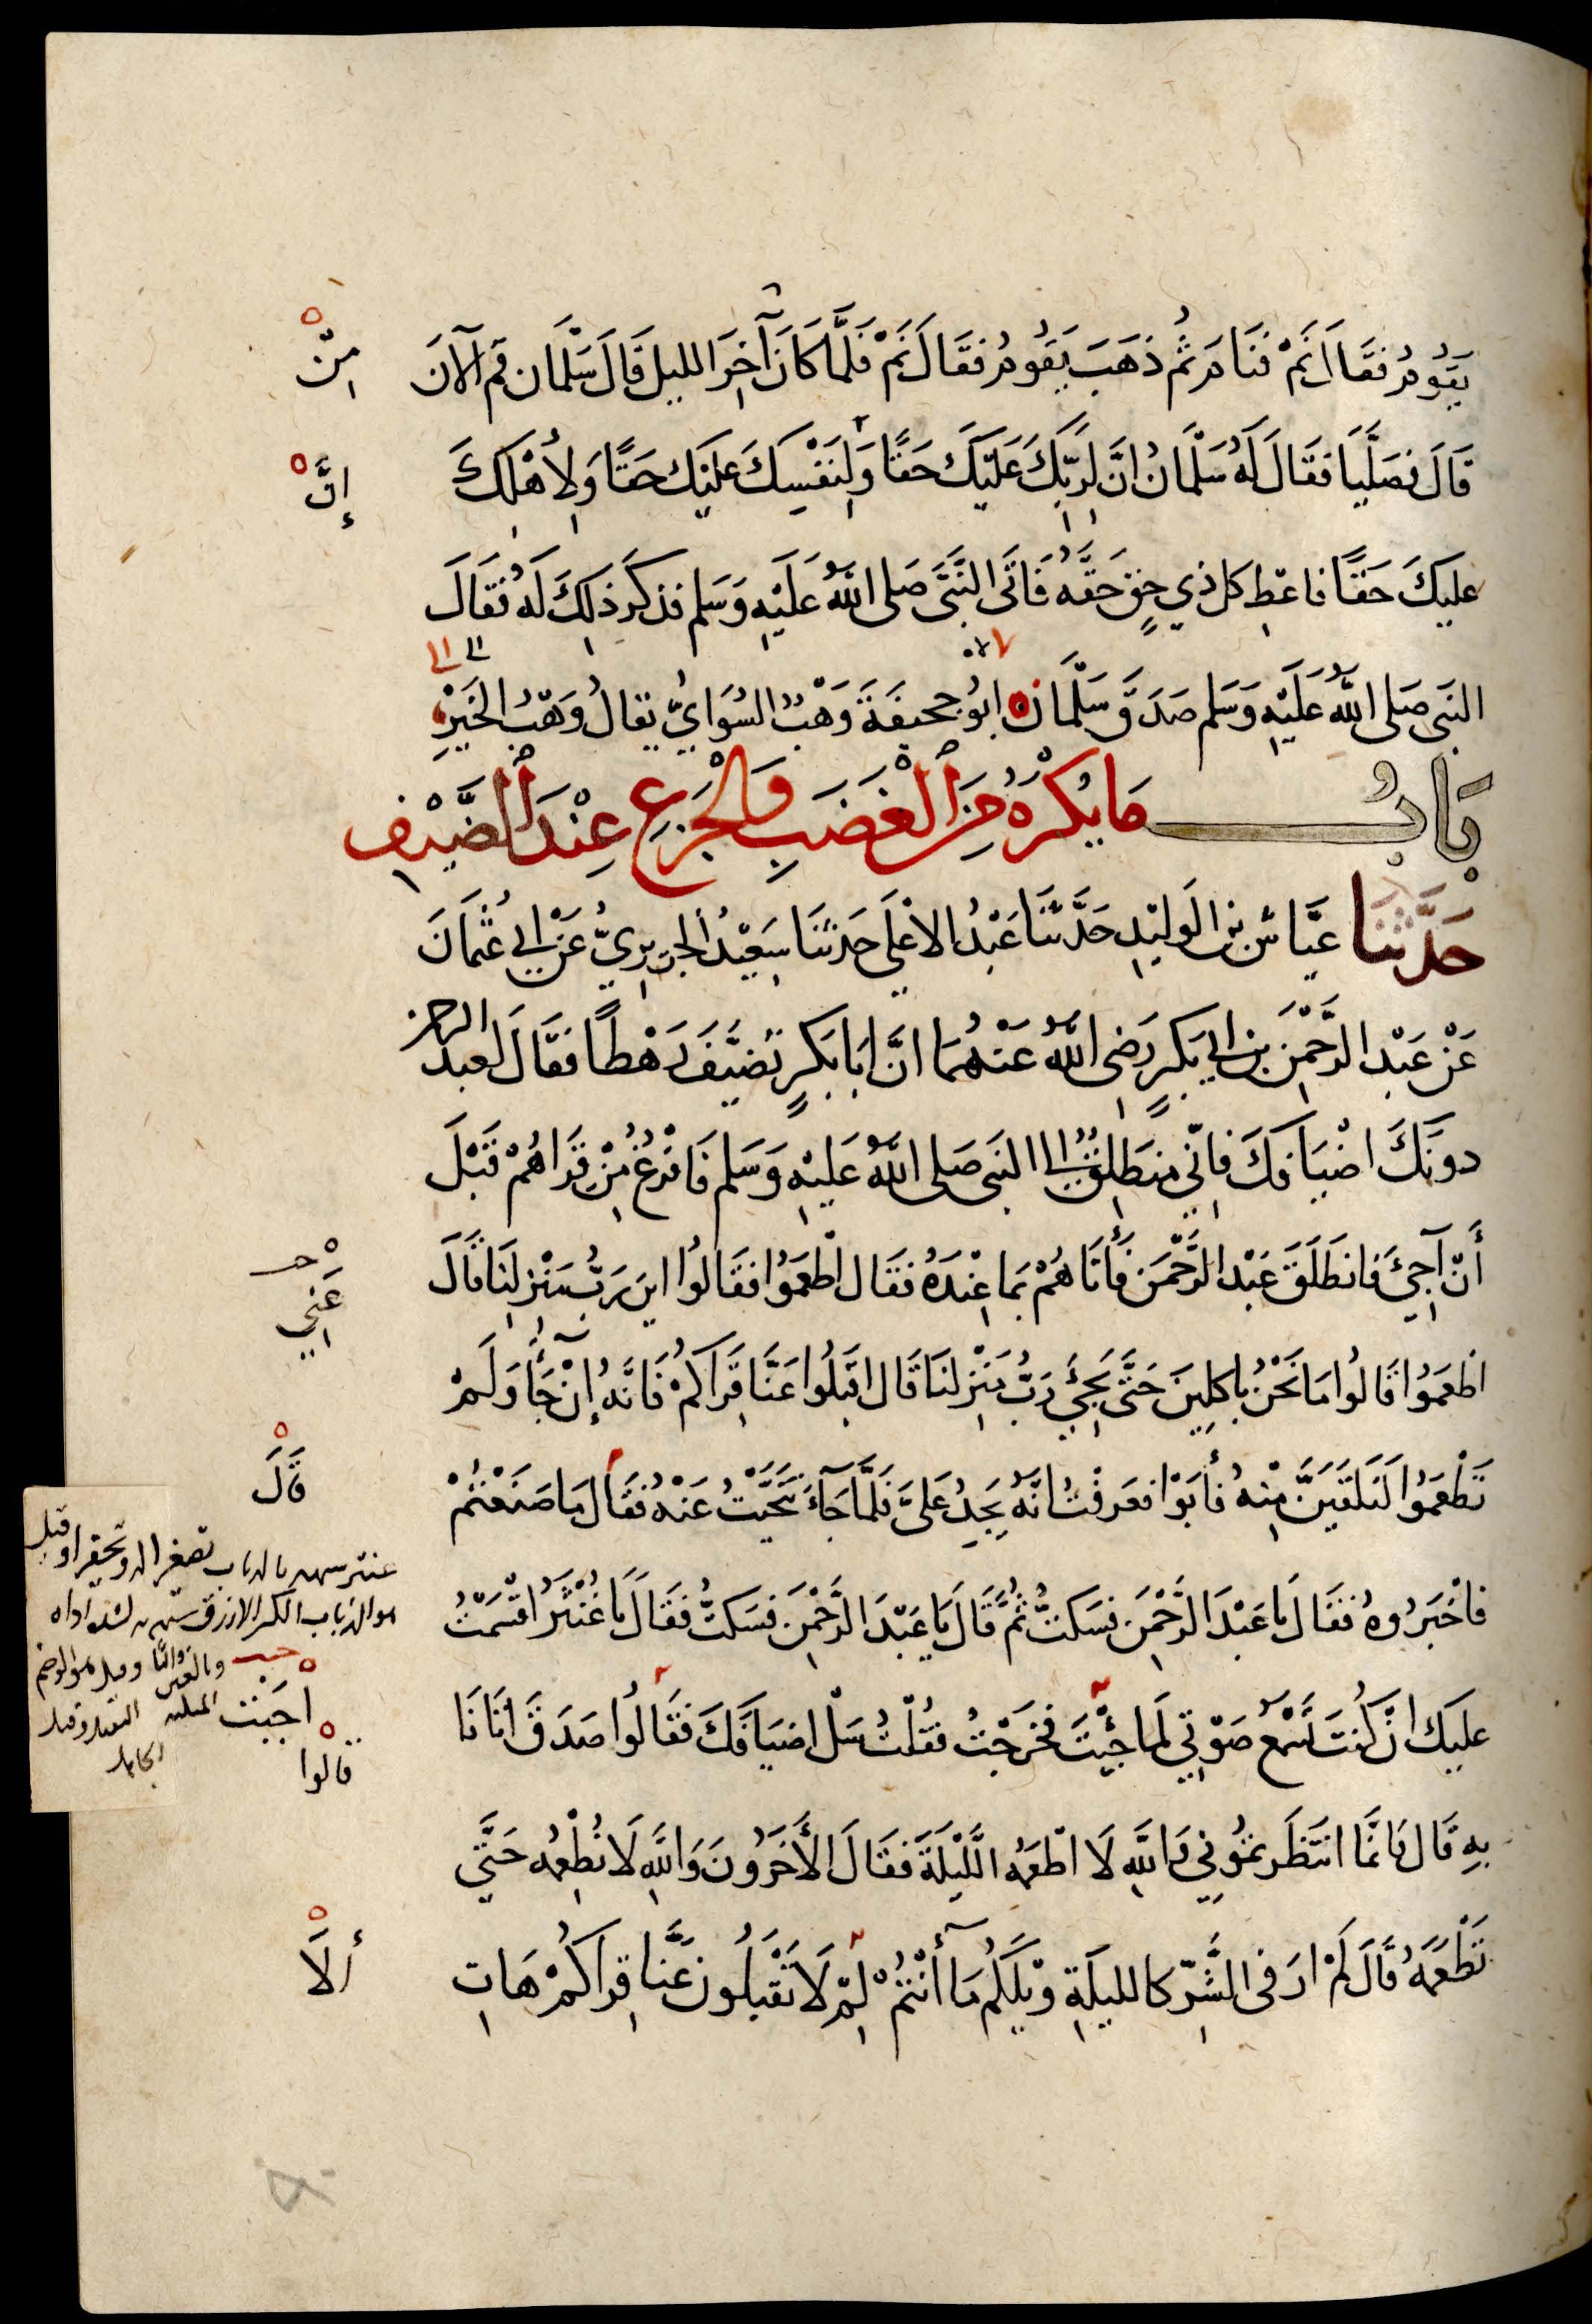 يَقُومُ فقَالَ نَمْ فَنَامَ ثُمَّ ذهَبَ يَقُومُ فقَالَ نَمْ فَلَمَّا كَانَ آخِرَ الليل قَالَ سَلْمَان قم الآنَ
مِنْ
قَالَ فصَلَّيَا فقَالَ لَهُ سَلْمَانُ انَّ لِرَبِّكَ عَلَيْكَ حَقًّا وَلِنَفْسِكَ عَلَيْكَ حَقًّا وَلأِهْلِكَ
إِنَّ
عليكَ حَقًّا فاعْطِ كل ذِي حَقٍّ حَقَّهُ فَاتَى النَّبِيَّ صَلى اللهُ عَلَيْهِ وَسَلم فذكَرَ ذلِكَ لَهُ فقَالَ
النبَي صَلى اللهُ عَلَيْهِ وَسَلم صَدَقَ سَلْمَان ابُو جحيفَةَ وَهْبٌ السُوَايُّ يقالُ وَهْبُ الخَيْرِ
بَابُ مَا يُكْرَهُ مِنَ الْغَضَبِ وَالْجَزَعِ عِنْدَ الضَّيْفِ
حَدَّثنَا عيَّاش بن الوَليْدِ حَدَّثنَا عَبْدُ الاعْلَى حَدثنَا سَعِيْدُ الجريرِيُّ عَنْ ابي عُثمَانَ
عَنْ عَبْدِ الرَّحْمٰنِ بن ابي بَكرٍ رَضِى اللهُ عَنْهُمَا انَّ ابَا بَكرٍ تضيَّفَ رَهْطًا فقَالَ لعبد الرحمن
دونَكَ اضْيَافكَ فإنّي منطَلِقٌ الى النبَي صَلى اللهُ عَليْهِ وَسَلم فَافْرُغْ مِنْ قِرَاهُمْ قَبْلَ
أَنْ آجِيْءَ فانطَلَقَ عَبْد الرَّحْمٰنِ فَأَتَاهُمْ بمَا عِنْدَهُ فقَال اطْعَمُوا فقَالُوا اين رَبُّ مَنْزِلِنَا قَالَ
عَنِّي
اطْعَمُوا قَالُوا مَا نَحْنُ بآكِلِينَ حَتَّى يَجِيْءَ رَبُّ مَنْزِلنَا قَال اقبَلُوا عَنَّا قِرَاكُمْ فَانَّهُ إِنْ جَآءَ وَلَمْ
تَطْعَمُوا لَنَلْقَيَنَّ مِنْهُ فأبَوْا فعَرفْتُ انَّهُ يَجِدُ عَلىَّ فَلمَّا جَآءَ تَنَحَّيْتُ عَنْهُ فقَالَ مَا صَنعْتُمْ
قَالَ
فاخْبَرُوهُ فقَالَ يَا عَبْدَ الرَّحْمٰنِ فسَكتُّ ثُمَّ قَالَ يَا عَبْدَ الرَّحْمٰنِ فسَكتُّ فقَالَ يَا غُنْثَرُ اقْسَمْتُ
عليكَ انْ كُنتَ تَسْمَعُ صَوْتِي لَمَا جِئْتَ فخَرَجْتُ فقُلْتُ سَلْ اضيَافَكَ فقَالُوا صَدَقَ اتَانَا
اجَبْت
قالوا
بِهِ قَال فَانمَّا انتَظَرتمُوْنِي وَاللَّهِ لَا اطْعَمُه اللَّيْلَةَ فقَالَ الأَخَرُونَ وَاللَّهِ لَا نُطْعِمُه حَتَّي
تَطْعَمَهُ قَالَ لَمْ ارَ فى الشَّرِّ كالليلَةِ وَيْلَكُمْ مَا أَنْتُمْ لِمَ لَا تَقْبَلُونَ عَنَّا قِرَاكُمْ هَاتِ
ألَا